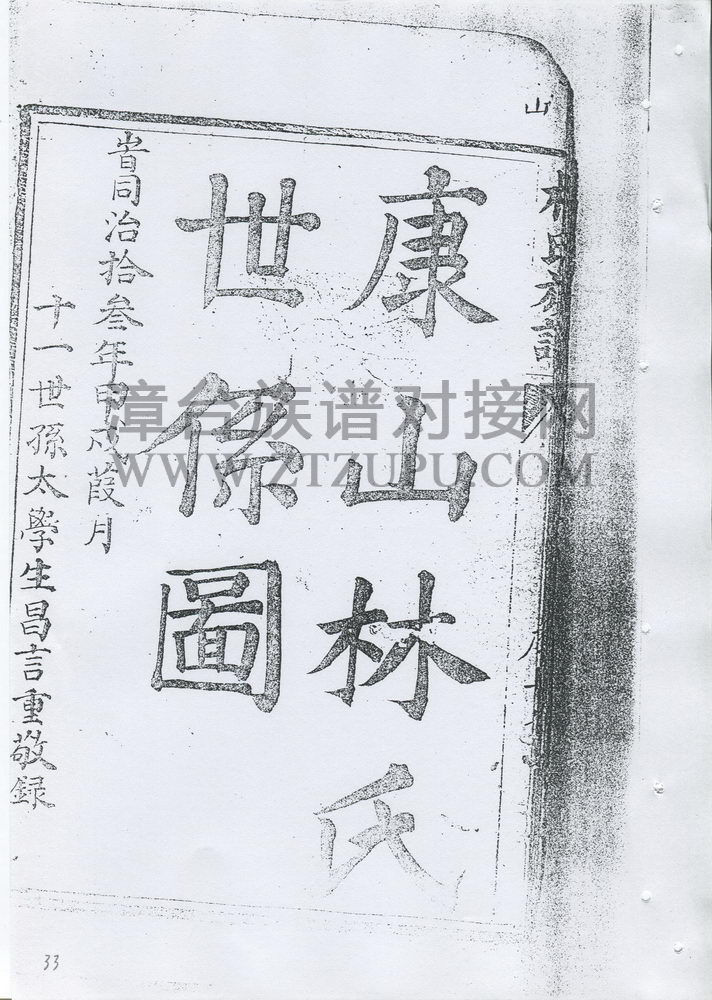 康山林氏
世係圖
旹同治拾叁年甲戌葭月
十一世孫太學生昌言重敬録
山
林氏族譜
漳台族谱对接网
WWW.ZTZUPU.COM
33